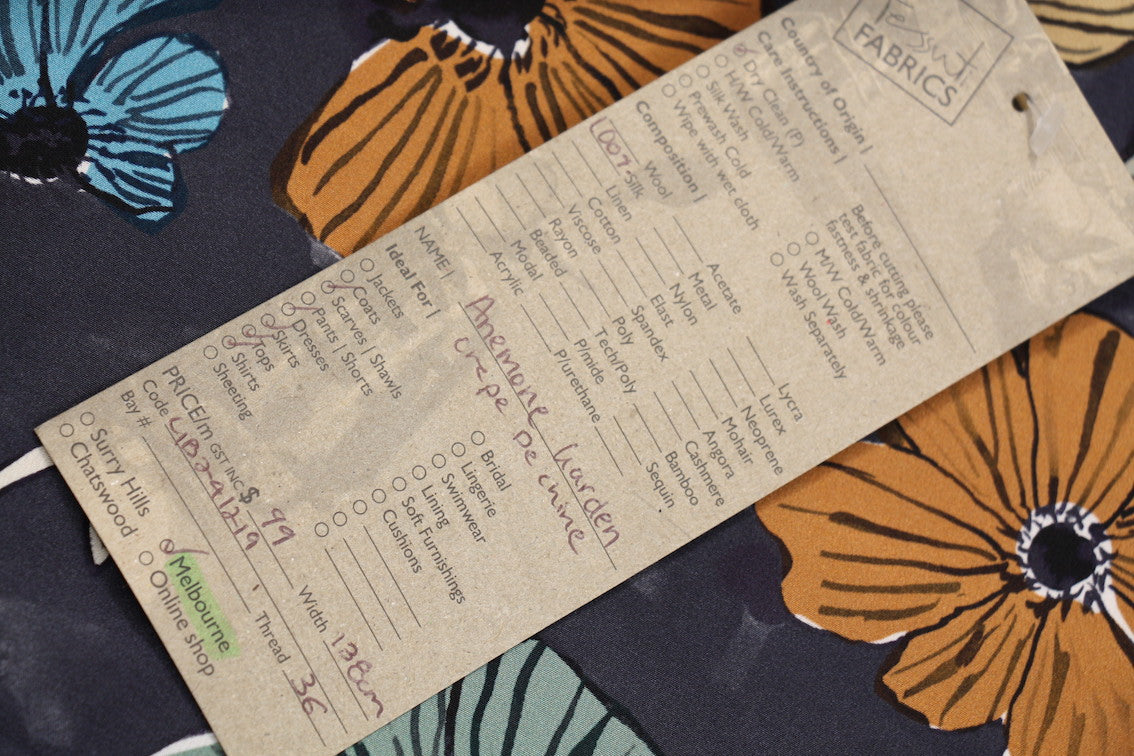 Tessuti
FABRICS
Country of Origin |
Care Instructions |
Dry Clean (P)
H/W Cold/Warm
Silk Wash
Prewash Cold
Wipe with wet cloth
Before cutting please
test fabric for colour
fastness & shrinkage
M/W Cold/Warm
Wool Wash
Wash Separately
Composition |
Wool
100% Silk
Linen
Cotton
Viscose
Rayon
Beaded
Modal
Acrylic
Acetate
Metal
Nylon
Elast
Spandex
Poly
Tech/Poly
P/mide
P/Urethane
Lycra
Lurex
Neoprene
Mohair
Angora
Cashmere
Bamboo
Sequin
NAME | Anemone Garden
crepe De chine
Ideal For |
Jackets
Coats
Scarves | Shawls
Pants | Shorts
Dresses
Skirts
Tops
Shirts
Sheeting
Bridal
Lingerie
Swimwear
Lining
Soft Furnishings
Cushions
PRICE/m GST INC $ 99 Width 138cm
Code LIB241219 Thread 36
Bay #
Surry Hills Melbourne
Chatswood Online shop